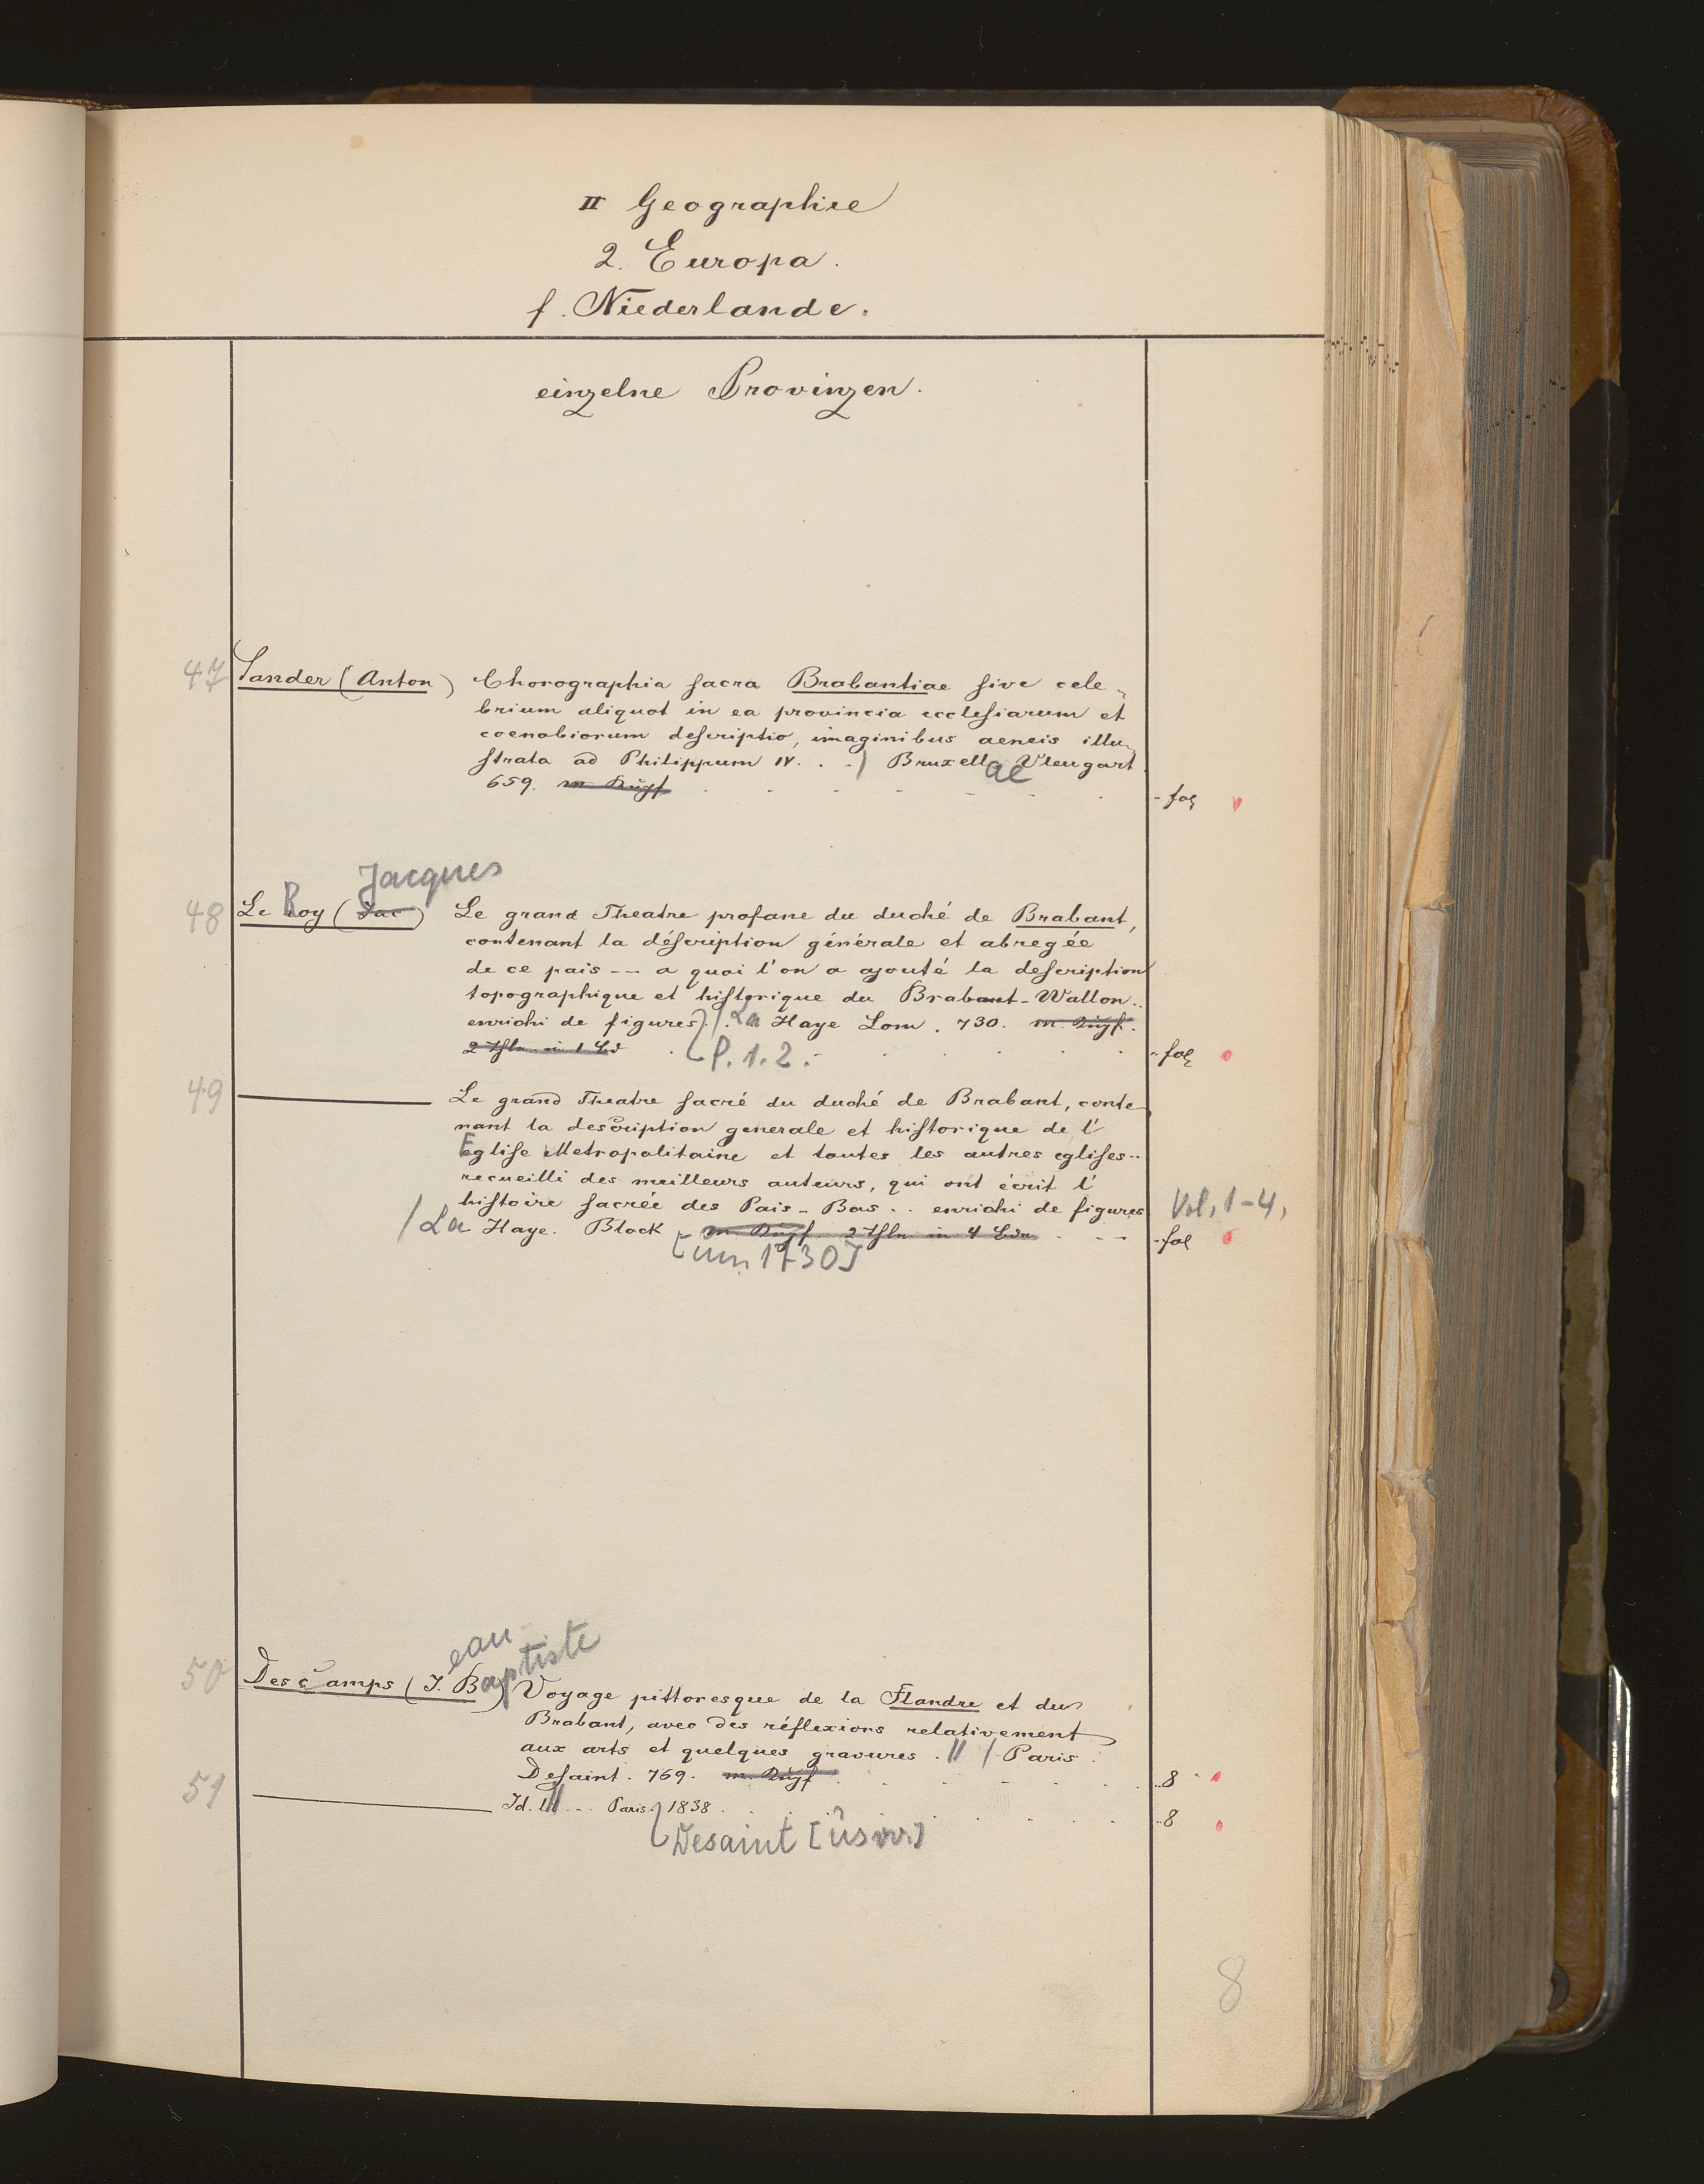 II Geographie
2. Europa.
f. Niederlande.
einzelne Provinzen.
47 Sander (Anton) Chorographia sacra Brabantiae sive cele-
brium aliquot in ea provincia ecclesiarum et
coenobiorum descriptio, imaginibus aeneis illu-
strata ad Philippum IV. . . / Bruxellae Vleugart
659. m. Kupf. - fol
Jacques
48 Le Roy (Jac) Le grand Theatre profane du duché de Brabant,
contenant la déscription générale et abregée
de ce pais -- a quoi l'on a ajouté la description
topographique et historique du Brabant-Wallon..
enrichi de figures. / La Haye Lom. 730. m. Kupf.
2 Thle in 1 Bd P. 1. 2. - fol
49 Le grand Theatre sacré du duché de Brabant, conte-
nant la description generale et historique de l'
Eglise Metropolitaine et toutes les autres eglises..
recueilli des meilleurs auteurs, qui ont écrit l'
histoire sacrée des Pais-Bas .. enrichi de figures Vol. 1-4,
/ La Haye. Block m. Kupf. 2 Thle in 4 Bdn - fol
[um 1730]
50 Descamps (J. Baptiste) Voyage pittoresque de la Flandre et du
ean
Brabant, avec des réflexions relativement
aux arts et quelques gravures. // / Paris.
Desaint. 769. m. Kupf. 8
51 Id. l // -- Paris. 1838. 8
Desaint [usw.]
8